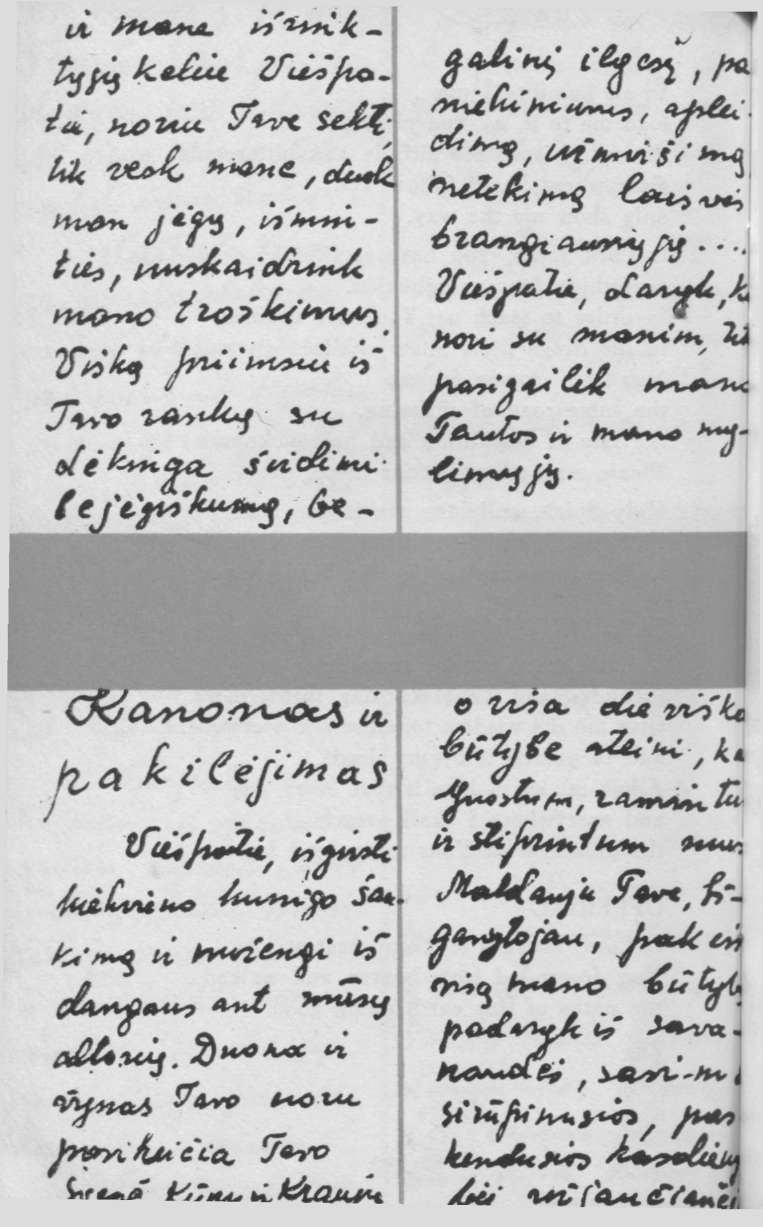 ir mane išmik-
tųjį keliu Viešpa-
tie, noriu Tave sekti,
tik veok mane, duok
man jėgų, išmin-
ties, nuskaidrink
mano troškimus.
Viską priimsiu iš
Tavo rankų su
dėkinga širdimi
bejėgiškumą, be-
galinį ilgesį, pa
niekinimus, aplei-
dimą, užmiršimą
netekimą laisvės
brangiausiųjų....
Viešpatie, daryk, k
nori su manim, tik
pasigailėk mano
Tautos ir mano my-
limųjų.
Kanonas ir
pakilėjimas
Viešpatie, išgirsti
kiekvieno kunigo šau-
kimą ir nužengi iš
dangaus ant mūsų
altorių. Duona ir
vynas Tavo noru
pasikeičia Tavo
Šventą Kūną ir Kraują
o visa dieviška
būtybe ateini, ka
guostum, ramintu
ir stiprintum mus
Maldauju Tave, Iš-
ganytojau, pakeis
visą mano būtybę
padaryk iš sava-
naudės, savi-m
sirūpinusios, pas
kendusios kasdieny
bei